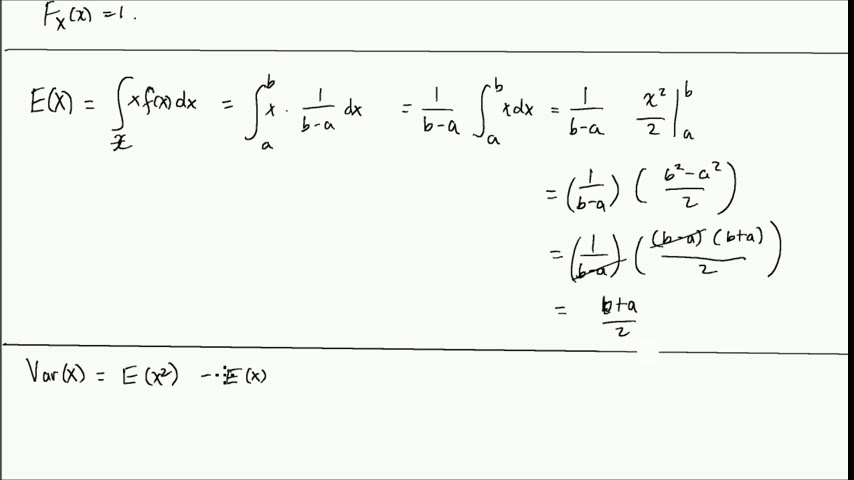 F_X(x) = 1.
E(X) = ∫_𝒳 x f(x) dx = ∫_a^b x · 1/(b-a) dx = 1/(b-a) ∫_a^b x dx = 1/(b-a) x²/2 |_a^b
= (1/(b-a)) ((b²-a²)/2)
= (1/(b-a)) ((b-a)(b+a)/2)
= (b+a)/2
Var(X) = E(x²) - E(x)